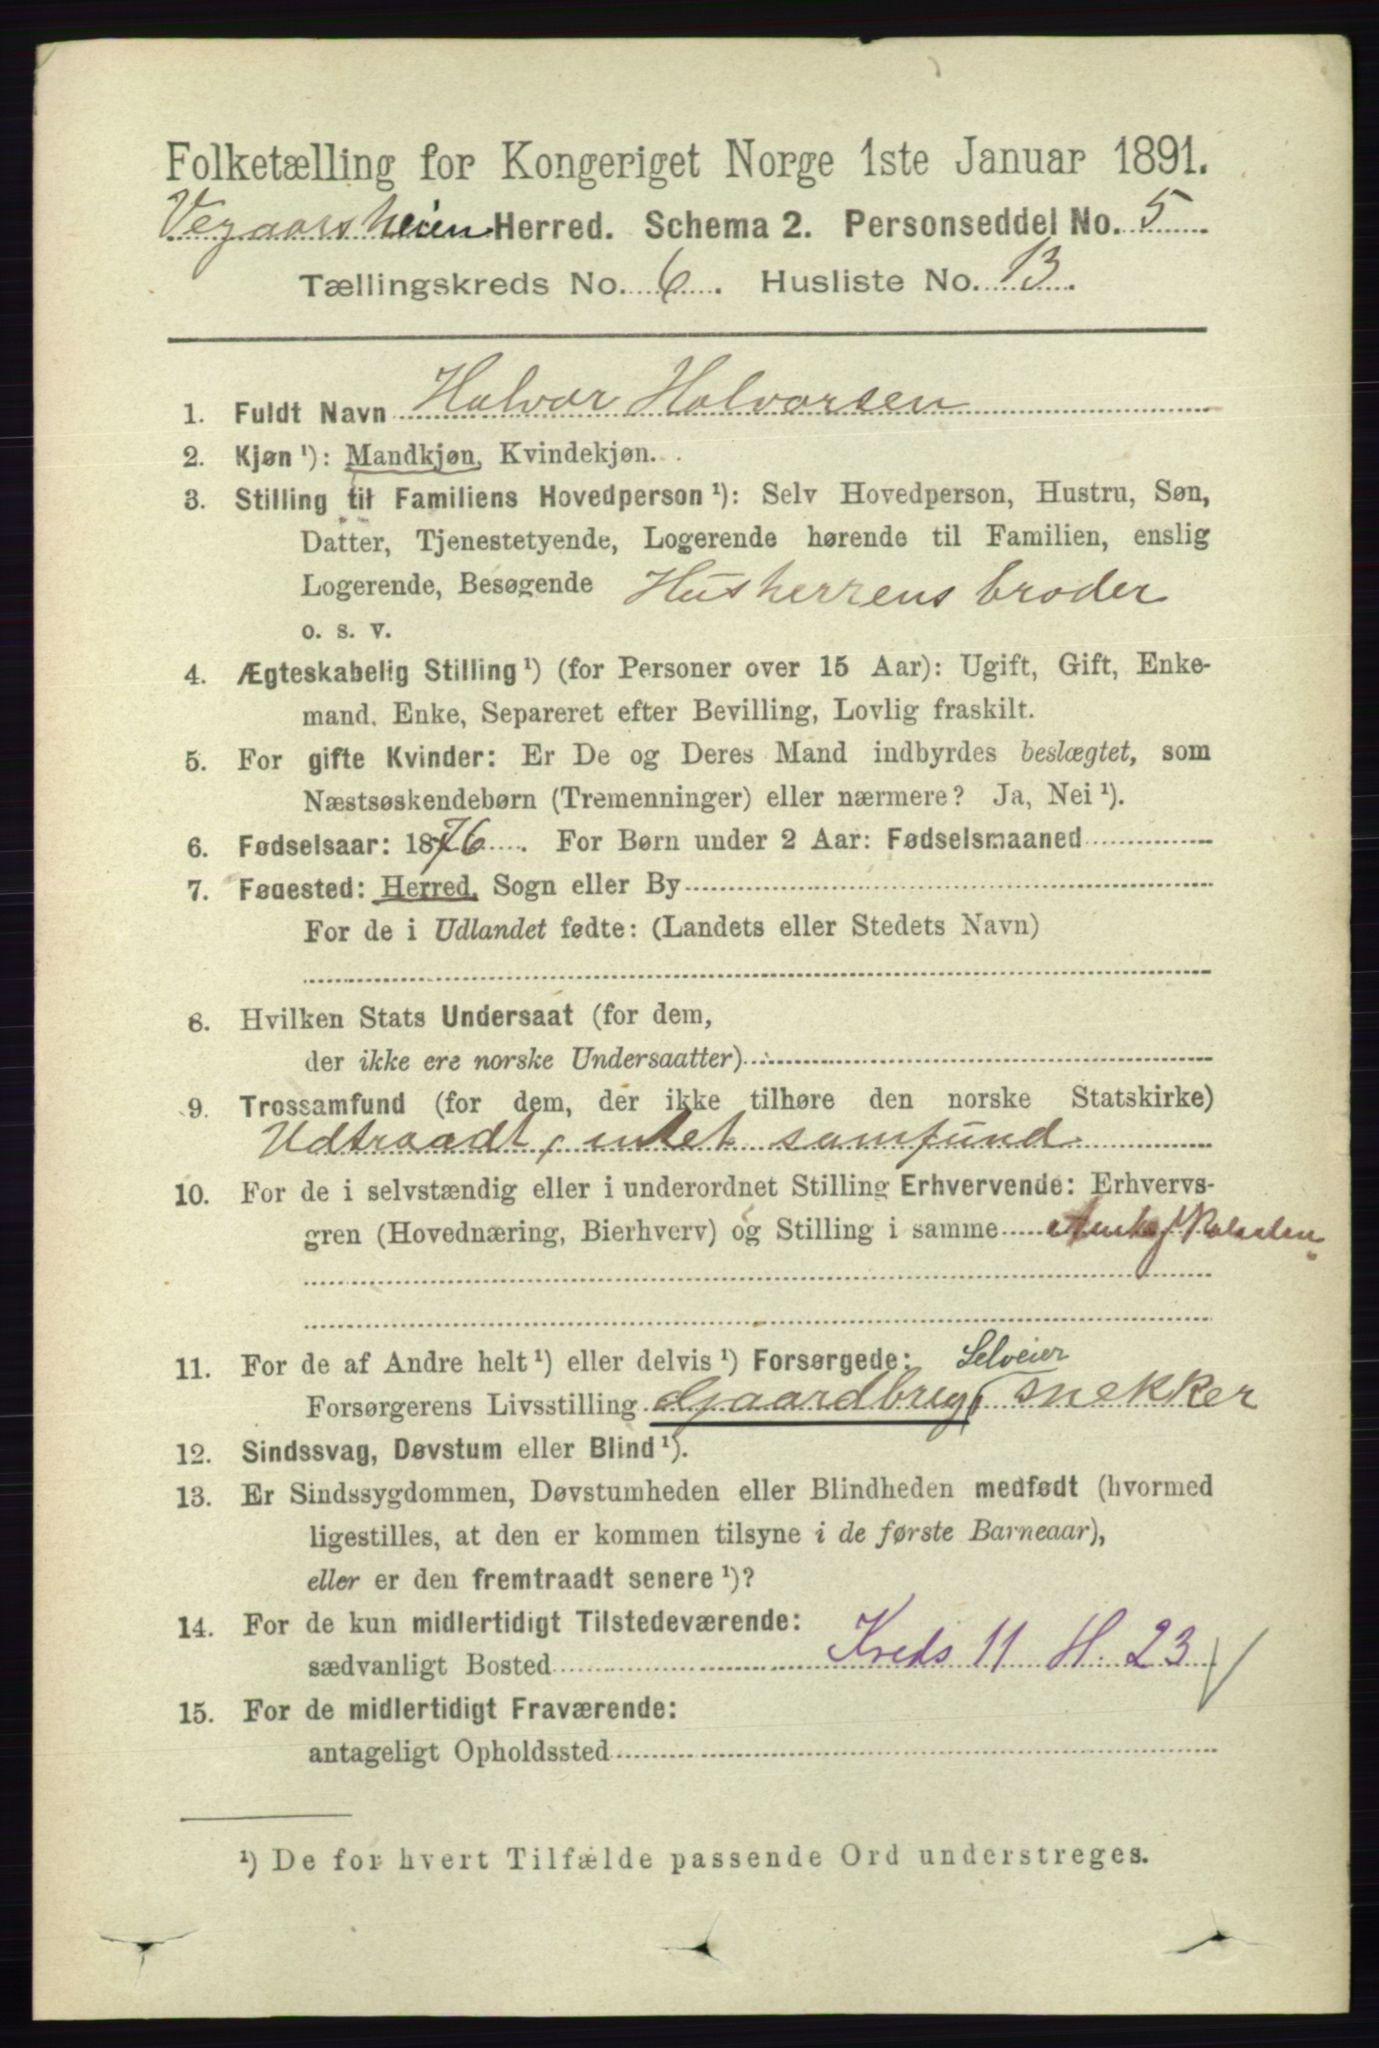 Folketælling for Kongeriget Norge 1ste Januar 1891.
Vegaarsheien Herred. Schema 2. Personseddel No. 5
Tællingskreds No. 6. Husliste No. 13.
1. Fuldt Navn Halvor Halvorsen
2. Kjøn ¹): Mandkjøn, Kvindekjøn.
3. Stilling til Familiens Hovedperson ¹): Selv Hovedperson, Hustru, Søn,
Datter, Tjenestetyende, Logerende hørende til Familien, enslig
Logerende, Besøgende Husherrens broder
o. s. v.
4. Ægteskabelig Stilling ¹) (for Personer over 15 Aar): Ugift, Gift, Enke-
mand, Enke, Separeret efter Bevilling, Lovlig fraskilt.
5. For gifte Kvinder: Er De og Deres Mand indbyrdes beslægtet, som
Næstsøskendebørn (Tremenninger) eller nærmere? Ja, Nei ¹).
6. Fødselsaar: 1876. For Børn under 2 Aar: Fødselsmaaned
7. Fødested: Herred, Sogn eller By
For de i Udlandet fødte: (Landets eller Stedets Navn)
8. Hvilken Stats Undersaat (for dem,
der ikke ere norske Undersaatter)
9. Trossamfund (for dem, der ikke tilhøre den norske Statskirke)
Udtraadt, intet samfund
10. For de i selvstændig eller i underordnet Stilling Erhvervende: Erhvervs-
gren (Hovednæring, Bierhverv) og Stilling i samme
11. For de af Andre helt ¹) eller delvis ¹) Forsørgede: Selveier
Forsørgerens Livsstilling Gaardbrug, snekker
12. Sindssvag, Døvstum eller Blind ¹).
13. Er Sindssygdommen, Døvstumheden eller Blindheden medfødt (hvormed
ligestilles, at den er kommen tilsyne i de første Barneaar),
eller er den fremtraadt senere ¹)?
14. For de kun midlertidigt Tilstedeværende:
sædvanligt Bosted Kreds 11 H. 23
15. For de midlertidigt Fraværende:
antageligt Opholdssted
¹) De for hvert Tilfælde passende Ord understreges.